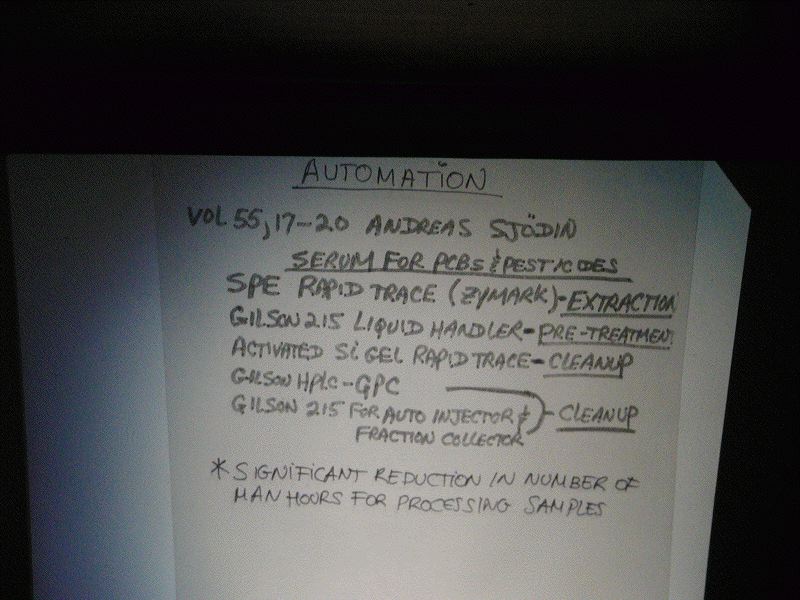 AUTOMATION
VOL 55, 17-20 ANDREAS SJÖDIN
SERUM FOR PCBS & PESTICIDES
SPE RAPID TRACE (ZYMARK)-EXTRACTION
GILSON 215 LIQUID HANDLER-PRE-TREATMENT
ACTIVATED Si GEL RAPID TRACE-CLEANUP
GILSON HPLC-GPC
GILSON 215 FOR AUTO INJECTOR & } CLEANUP
FRACTION COLLECTOR
* SIGNIFICANT REDUCTION IN NUMBER OF
MAN HOURS FOR PROCESSING SAMPLES